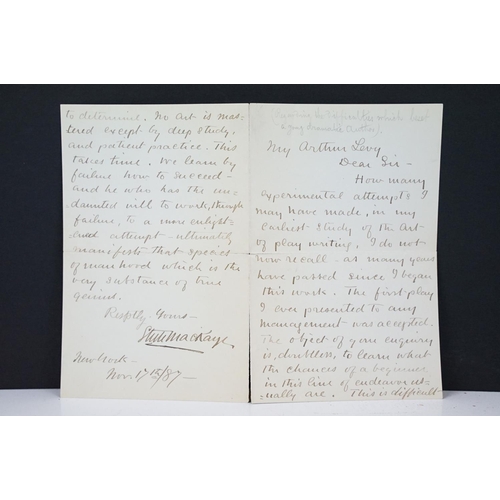 My Arthur Levy
Dear Sir -
How many
experimental attempts I
may have made, in my
earliest study of the Art
of play writing, I do not
now recall - as many years
have passed since I began
this work. The first play
I ever presented to any
management was accepted.
The object of your enquiry
is, doubtless, to learn what
the chances of a beginner
in this line of endeavor us-
=ually are. This is difficult
to determine. No Art is mas-
tered except by deep study,
and patient practice. This
takes time. We learn by
failure how to succeed -
and he who has the un-
daunted will to work, through
failure, to a more enlight-
ened attempt - ultimately
manifests that species
of manhood which is the
very substance of true
genius.
Respctly Yours -
Steele MacKaye
New York -
Nov. 17th/87 -